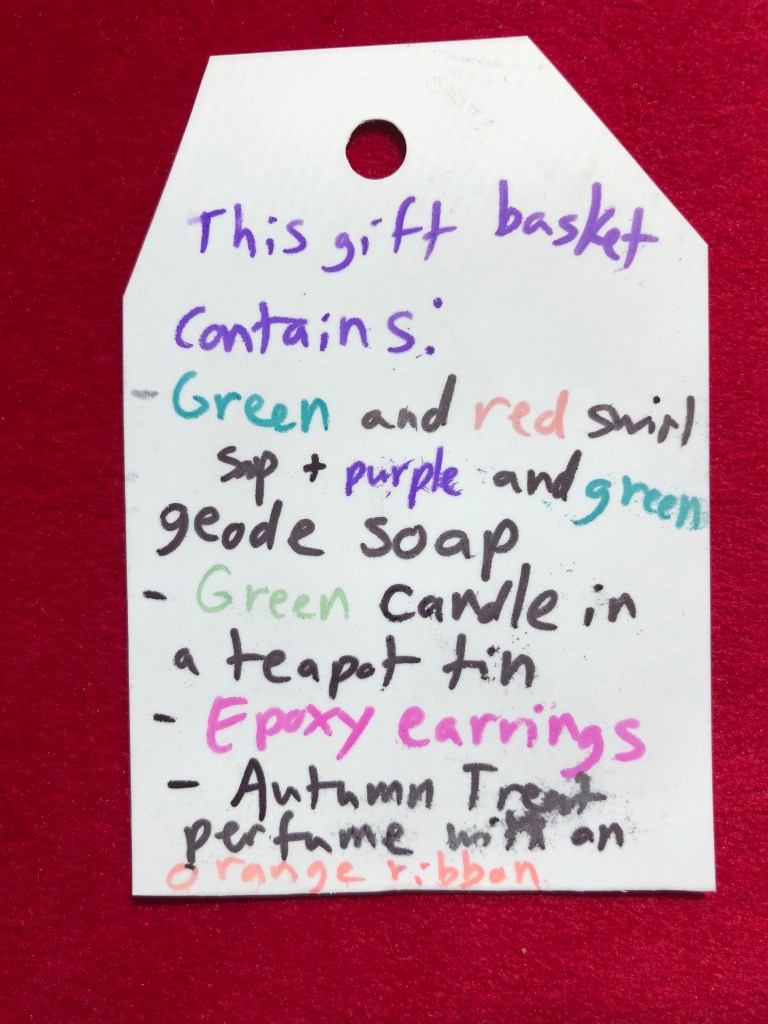 This gift basket
contains:
- Green and red swirl
sop + purple and green
geode soap
- Green candle in
a teapot tin
- Epoxy earrings
- Autumn Treat
perfume with an
orange ribbon